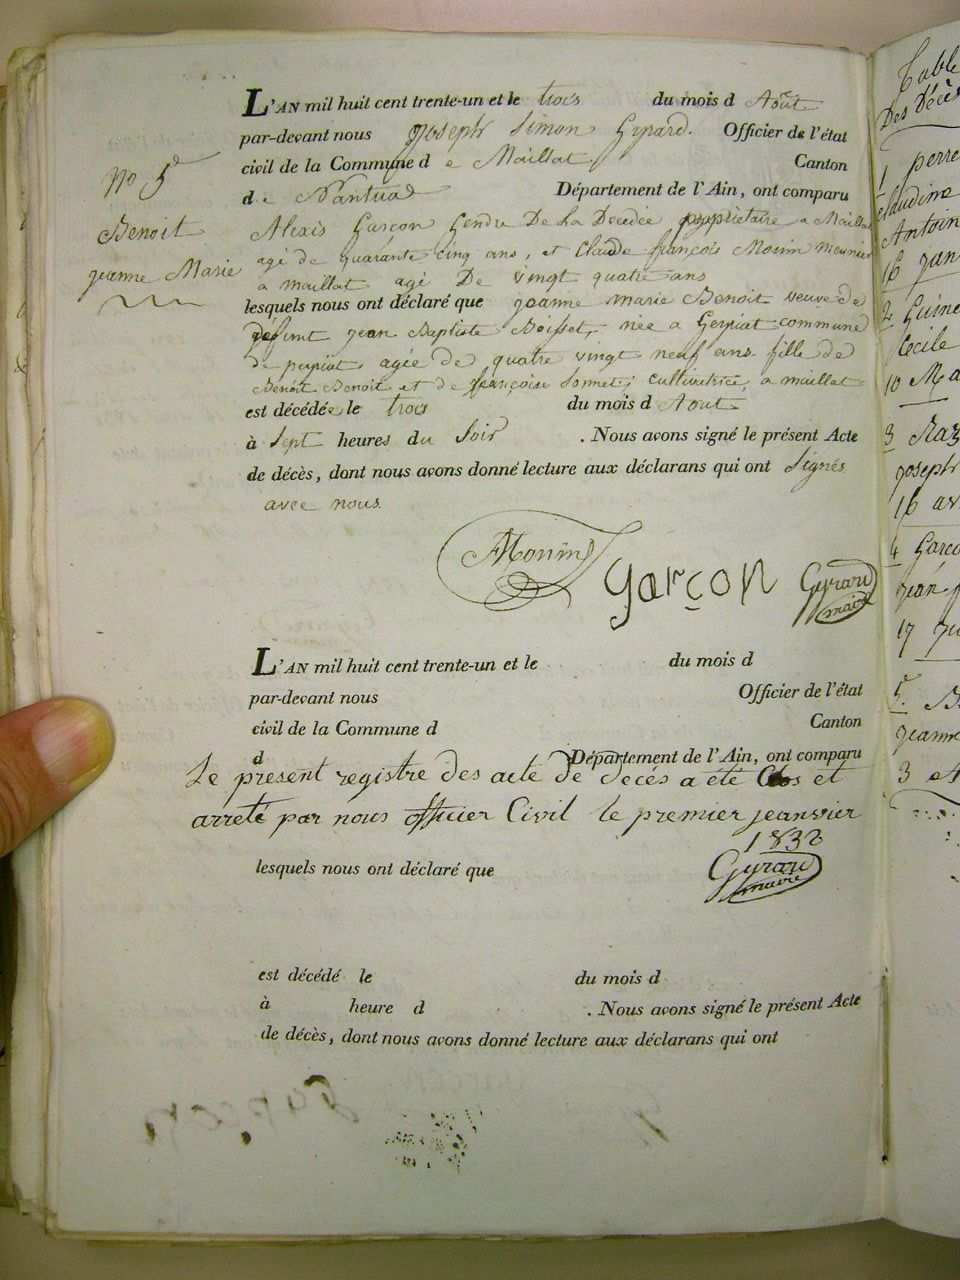 L'AN mil huit cent trente-un et le trois du mois d Août
par-devant nous Joseph Simon Gyrard. Officier de l'état
civil de la Commune d e Maillat Canton
d e Nantua Département de l'Ain, ont comparu
No 5
Benoit
jeanne Marie
Alexis Garçon Gendre De La Decedée propriétaire a Maillat
agé de quarante cinq ans, et Claude françois Monin meunier
a maillat agé De vingt quatre ans
lesquels nous ont déclaré que jeanne marie Benoit veuve de
défunt jean Baptiste Boisset, née a commune
de agée de quatre vingt neuf ans fille de
Benoit Benoit et de françoise cultivatrice a maillat
est décédée le trois du mois d Aout
à Sept heures du Soir . Nous avons signé le présent Acte
de décès, dont nous avons donné lecture aux déclarans qui ont Signés
avec nous.
Monin garçon Gyrard
maire
L'AN mil huit cent trente-un et le du mois d
par-devant nous Officier de l'état
civil de la Commune d Canton
d Département de l'Ain, ont comparu
Le present registre des acte de decés a été Clos et
arreté par nous officier Civil le premier jeanvier
1832
Gyrard
maire
lesquels nous ont déclaré que
est décédé le du mois d
à heure d . Nous avons signé le présent Acte
de décès, dont nous avons donné lecture aux déclarans qui ont
Table
Des Décès
1 perre
claudine
Antoin
16 jan
2
Cecile
10 Ma
3 Raz
joseph
16 av
4 Garço
jean
17 ju
5. B
jeanne
3 A